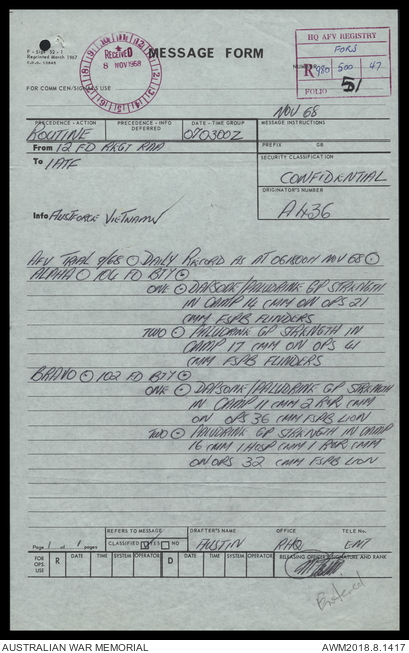 MESSAGE FORM
Reprinted March 1967
RECEIVED
8 NOV 1968
HQ AFV REGISTRY
FORS
R 980 500 47
FOLIO 51
FOR COMM CEN/SIGNALS USE
NOV 68
PRECEDENCE - ACTION
ROUTINE
PRECEDENCE - INFO
DEFERRED
DATE - TIME GROUP
070300Z
MESSAGE INSTRUCTIONS
From 12 FD REGT RAA
PREFIX GR
To 1ATF
SECURITY CLASSIFICATION
CONFIDENTIAL
ORIGINATOR'S NUMBER
A436
Info AUSTFORCE VIETNAM
AFV TRIAL 9/68 ⊙ DAILY RECORD AS AT 061800H NOV 68 ⊙
ALPHA ⊙ 104 FD BTY ⊙
ONE ⊙ DAPSONE/PALUDRINE GP STRENGTH
IN CAMP 14 CMM ON OPS 21
CMM FSPB FLINDERS
TWO ⊙ PALUDRINE GP STRENGTH IN
CAMP 17 CMM ON OPS 41
CMM FSPB FLINDERS
BRAVO ⊙ 102 FD BTY ⊙
ONE ⊙ DAPSONE/PALUDRINE GP STRENGTH
IN CAMP 11 CMM 2 R&R CMM
ON OPS 36 CMM FSPB LION
TWO ⊙ PALUDRINE GP STRENGTH IN CAMP
16 CMM 1 HOSP CMM 1 R&R CMM
ON OPS 32 CMM FSPB LION
Page 1 of pages
REFERS TO MESSAGE
CLASSIFIED YES NO
DRAFTER'S NAME
AUSTIN
OFFICE
RHQ
TELE No.
EXT
FOR OPS. USE
R DATE TIME SYSTEM OPERATOR D DATE TIME SYSTEM OPERATOR RELEASING OFFICER'S SIGNATURE AND RANK
Entered
AUSTRALIAN WAR MEMORIAL
AWM2018.8.1417